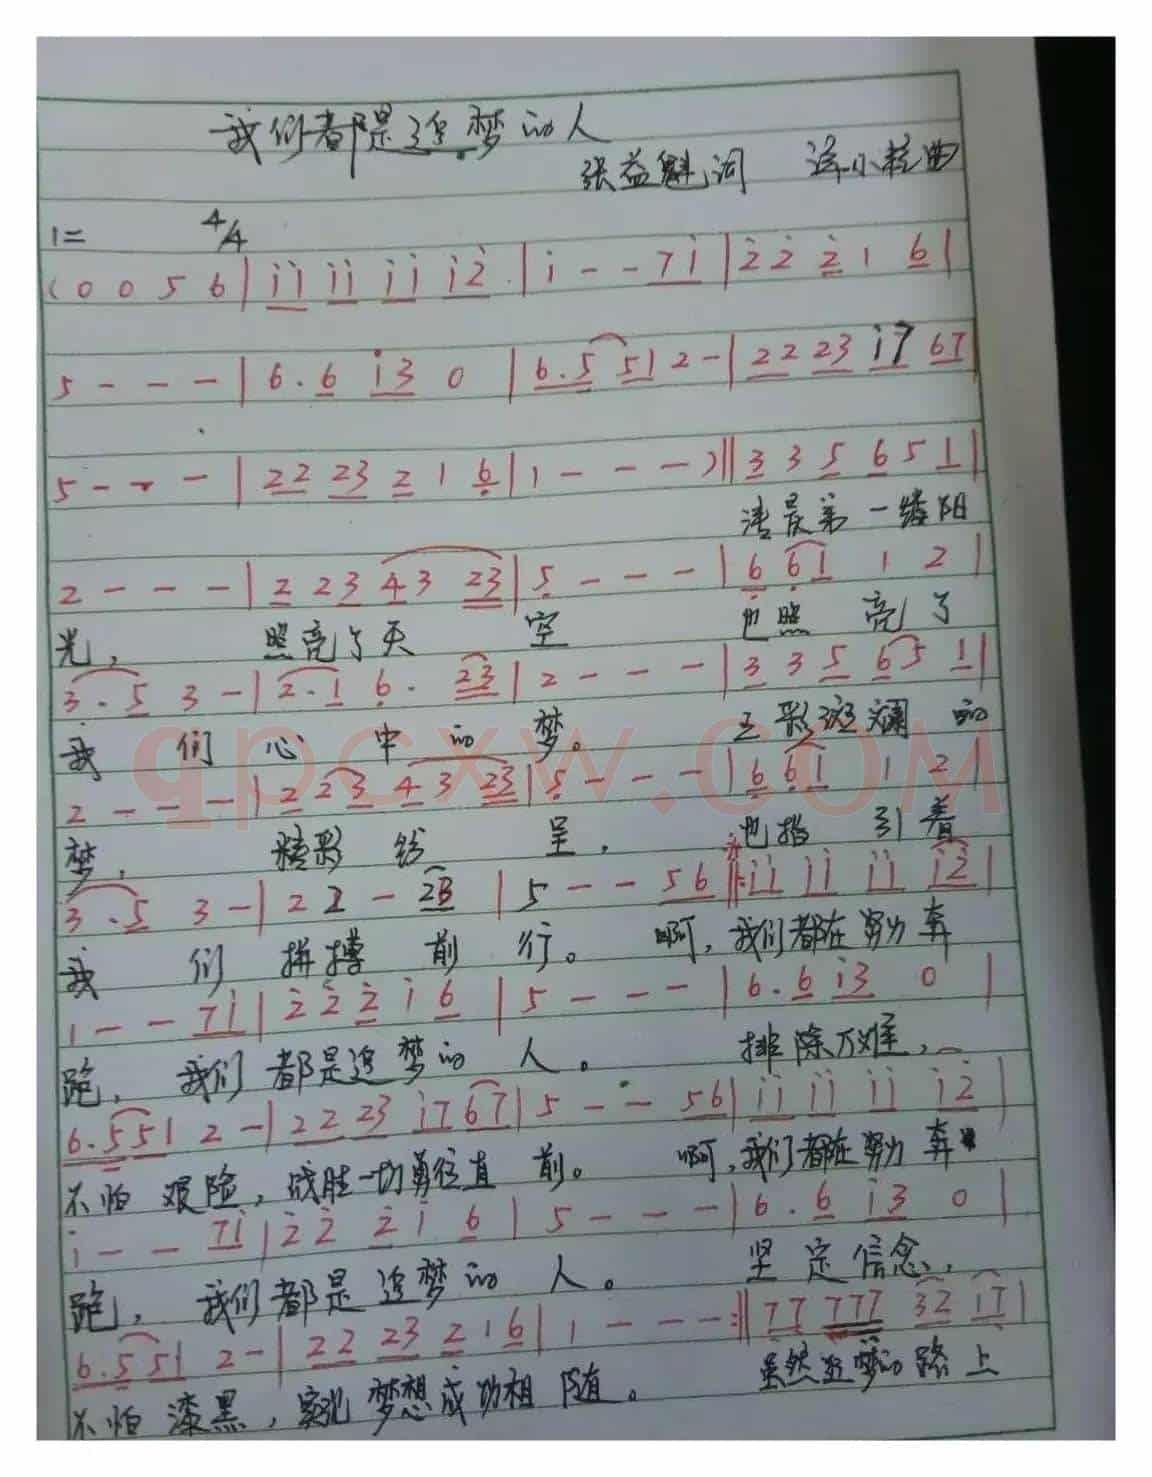 我们都是追梦的人
张益魁词 小粒曲
1= 4/4
(0 0 5 6 | i i i i i i i 2 | i - - 7 i | 2 2 2 1 6 |
5 - - - | 6. 6 i 3 0 | 6. 5 5 1 2 - | 2 2 2 3 i 7 6 7 |
5 - - - | 2 2 2 3 2 1 6 | 1 - - - ) || 3 3 5 6 5 1 |
清晨第一缕阳
2 - - - | 2 2 3 4 3 2 3 | 5 - - - | 6 6 1 1 2 |
光, 照亮了天 空 也照 亮了
3. 5 3 - | 2. 1 6. 2 3 | 2 - - - | 3 3 5 6 5 1 |
我 们 心 中 的 梦。 五彩斑斓 的
2 - - - | 2 2 3 4 3 2 3 | 5 - - - | 6 6 1 1 2 |
梦, 精彩 纷 呈, 也指 引着
3. 5 3 - | 2 2 - 2 3 | 5 - - 5 6 ||: i i i i i i i 2 |
我 们 拼搏 前 行。 啊, 我们都在努力 奔
1 - - 7 i | 2 2 2 i 6 | 5 - - - | 6. 6 i 3 0 |
跑, 我们 都是追梦的 人。 排除万难,
6. 5 5 1 2 - | 2 2 2 3 i 7 6 7 | 5 - - 5 6 | i i i i i i i 2 |
不怕 艰险, 战胜一切勇往直 前。 啊, 我们都在努力 奔
i - - 7 i | 2 2 2 i 6 | 5 - - - | 6. 6 i 3 0 |
跑, 我们都是 追梦的 人。 坚定信念,
6. 5 5 1 2 - | 2 2 2 3 2 1 6 | 1 - - - :|| 7 7 7 7 7 3 2 1 7 |
不怕 漆黑, 实现 梦想成功相 随。 虽然 梦的路上
qpcxw.com